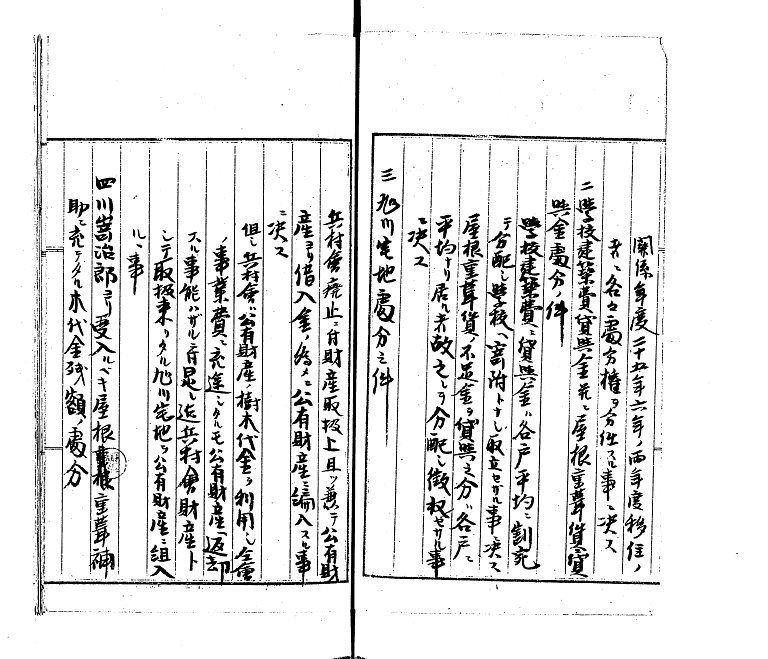 関係年度二十五年六年ノ両年度移住ノ
者ニ各々處分権ヲ分任スル事ニ決ス
二 學校建築費貸與金并ニ屋根重葺貸
與金處分ノ件
學校建築費ニ貸與金ハ各戸平均ニ割宛
テ分配シ學校ヘ寄附トナシ取立セザル事ニ決ス
屋根重葺貸ノ不足金ヲ貸與之分ハ各戸ニ
平均ナリ居ル者故之レヲ分配シ徴収セザル事
ニ決ス
三 旭川宅地處分之件
兵村會廃止ニ付財産取扱上且ツ兼テ公有財
産ヨリ借入金ノ為メニ公有財産ニ編入スル事
ニ決ス
但シ兵村會ハ公有財産ノ樹木代金ヲ利用シ全會
事業費ニ充途シタルモ公有財産ヘ返却
スル事能ハザル旨是レ迄兵村會財産ト
シテ取扱来リタル旭川宅地ヲ公有財産ニ組入
ルヽ事
四 川嵜治郎ヨリ受入ルベキ屋根重葺補
助ニ充テタル木代金残額ノ處分